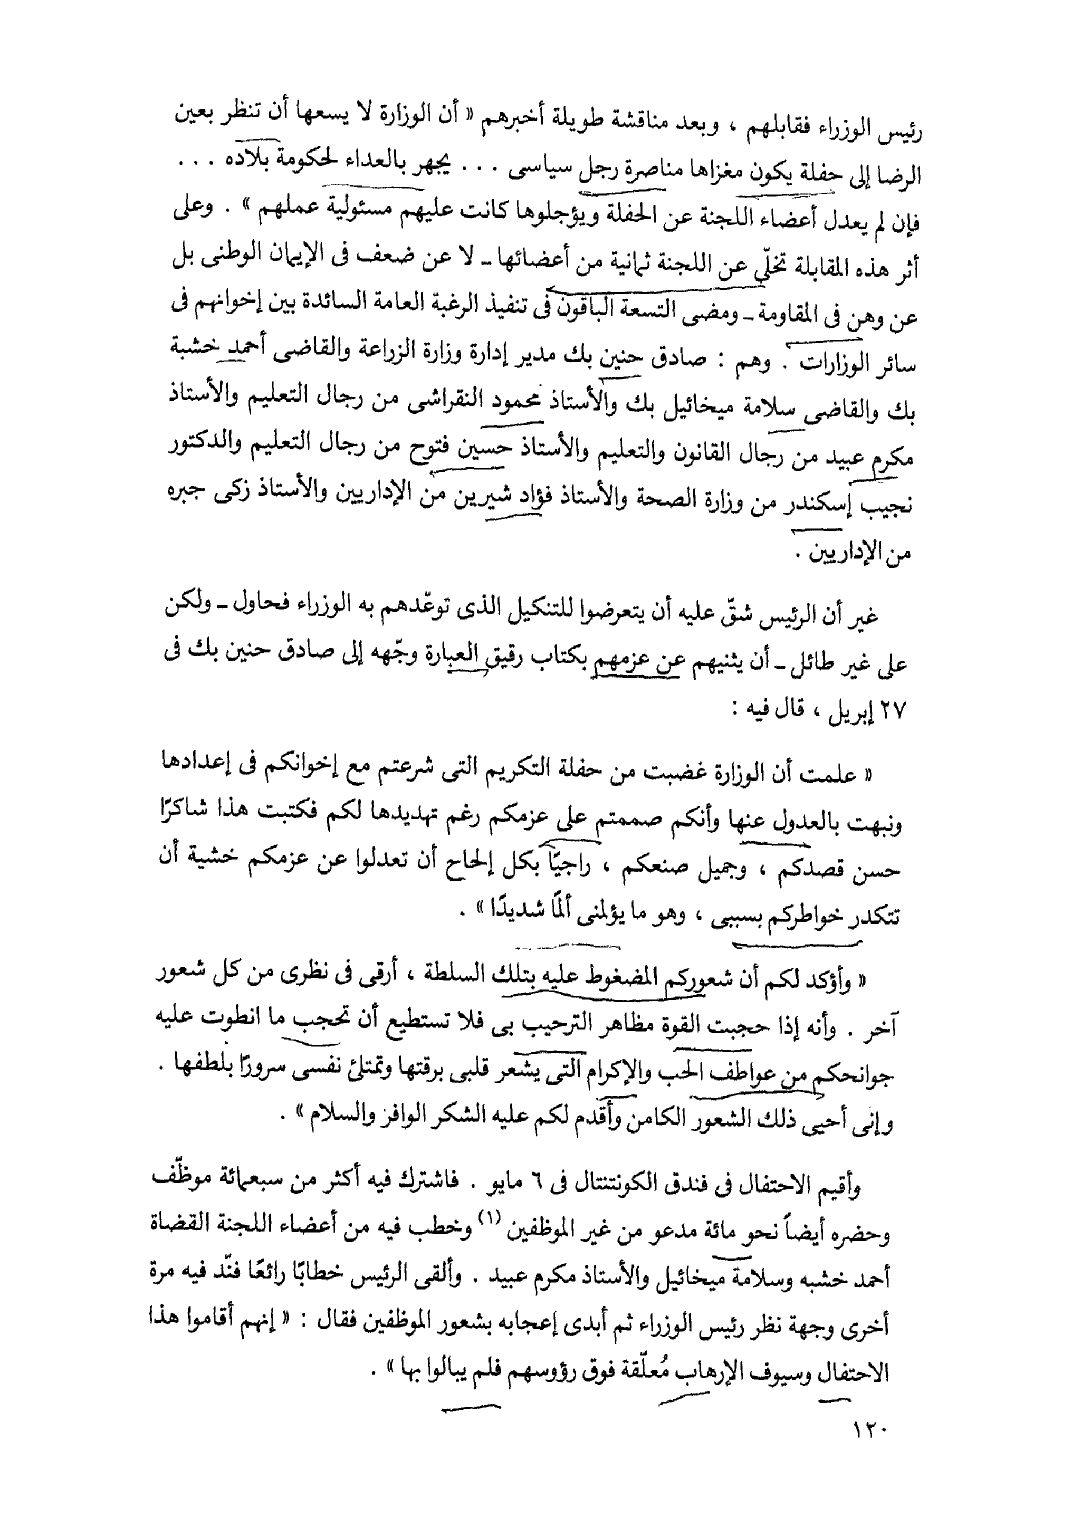 رئيس الوزراء فقابلهم ، وبعد مناقشة طويلة أخبرهم « أن الوزارة لا يسعها أن تنظر بعين
الرضا إلى حفلة يكون مغزاها مناصرة رجل سياسى ... يجهر بالعداء لحكومة بلاده ...
فإن لم يعدل أعضاء اللجنة عن الحفلة ويؤجلوها كانت عليهم مسئولية عملهم » . وعلى
أثر هذه المقابلة تخلّى عن اللجنة ثمانية من أعضائها ــ لا عن ضعف فى الإيمان الوطنى بل
عن وهن فى المقاومة ــ ومضى التسعة الباقون فى تنفيذ الرغبة العامة السائدة بين إخوانهم فى
سائر الوزارات . وهم : صادق حنين بك مدير إدارة وزارة الزراعة والقاضى أحمد خشبة
بك والقاضى سلامة ميخائيل بك والأستاذ محمود النقراشى من رجال التعليم والأستاذ
مكرم عبيد من رجال القانون والتعليم والأستاذ حسين فتوح من رجال التعليم والدكتور
نجيب إسكندر من وزارة الصحة والأستاذ فؤاد شيرين من الإداريين والأستاذ زكى جبره
من الإداريين .
غير أن الرئيس شقّ عليه أن يتعرضوا للتنكيل الذى توعّدهم به الوزراء فحاول ــ ولكن
على غير طائل ــ أن يثنيهم عن عزمهم بكتاب رقيق العبارة وجّهه إلى صادق حنين بك فى
٢٧ إبريل ، قال فيه :
« علمت أن الوزارة غضبت من حفلة التكريم التى شرعتم مع إخوانكم فى إعدادها
ونبهت بالعدول عنها وأنكم صممتم على عزمكم رغم تهديدها لكم فكتبت هذا شاكرًا
حسن قصدكم ، وجميل صنعكم ، راجيًا بكل إلحاح أن تعدلوا عن عزمكم خشية أن
تتكدر خواطركم بسببى ، وهو ما يؤلمنى ألمًا شديدًا » .
« وأؤكد لكم أن شعوركم المضغوط عليه بتلك السلطة ، أرقى فى نظرى من كل شعور
آخر . وأنه إذا حجبت القوة مظاهر الترحيب بى فلا تستطيع أن تحجب ما انطوت عليه
جوانحكم من عواطف الحب والإكرام التى يشعر قلبى برقتها وتمتلئ نفسى سرورًا بلطفها .
وإنى أحيى ذلك الشعور الكامن وأقدم لكم عليه الشكر الوافر والسلام » .
وأقيم الاحتفال فى فندق الكونتننتال فى ٦ مايو . فاشترك فيه أكثر من سبعمائة موظّف
وحضره أيضاً نحو مائة مدعو من غير الموظفين (١) وخطب فيه من أعضاء اللجنة القضاة
أحمد خشبه وسلامة ميخائيل والأستاذ مكرم عبيد . وألقى الرئيس خطابًا رائعًا فنّد فيه مرة
أخرى وجهة نظر رئيس الوزراء ثم أبدى إعجابه بشعور الموظفين فقال : « إنهم أقاموا هذا
الاحتفال وسيوف الإرهاب مُعلّقة فوق رؤوسهم فلم يبالوا بها » .
١٢٠